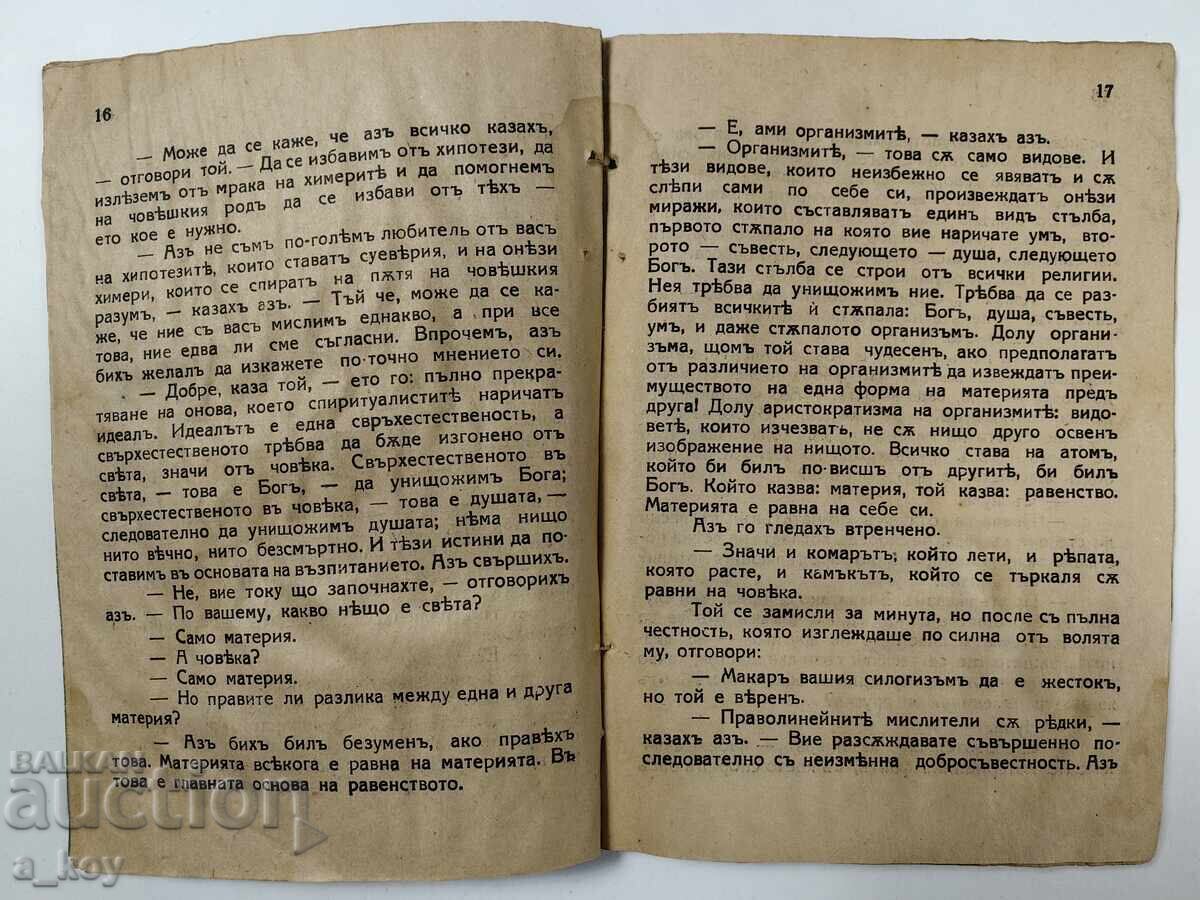 16
— Може да се каже, че азъ всичко казахъ,
— отговори той. — Да се избавимъ отъ хипотези, да
излѣземъ отъ мрака на химеритѣ и да помогнемъ
на човѣшкия родъ да се избави отъ тѣхъ —
ето кое е нужно.
— Азъ не съмъ по-голѣмъ любитель отъ васъ
на хипотезитѣ, които ставатъ суевѣрия, и на онѣзи
химери, които се спиратъ на пѫтя на човѣшкия
разумъ, — казахъ азъ. — Тъй че, може да се ка-
же, че ние съ васъ мислимъ еднакво, а при все
това, ние едва ли сме съгласни. Впрочемъ, азъ
бихъ желалъ да изкажете по-точно мнението си.
— Добре, каза той, — ето го: пълно прекра-
тяване на онова, което спиритуалиститѣ наричатъ
идеалъ. Идеалътъ е една свръхестественость, а
свърхестественото трѣбва да бѫде изгонено отъ
свѣта, значи отъ човѣка. Свърхестественото въ
свѣта, — това е Богъ, — да унищожимъ Бога;
свърхестественото въ човѣка, — това е душата, —
следователно да унищожимъ душата; нѣма нищо
нито вѣчно, нито безсмъртно. И тѣзи истини да по-
ставимъ въ основата на възпитанието. Азъ свършихъ.
— Не, вие току що започнахте, — отговорихъ
азъ. — По вашему, какво нѣщо е свѣта?
— Само материя.
— А човѣка?
— Само материя.
— Но правите ли разлика между една и друга
материя?
— Азъ бихъ билъ безуменъ, ако правѣхъ
това. Материята всѣкога е равна на материята. Въ
това е главната основа на равенството.
17
— Е, ами организмитѣ, — казахъ азъ.
— Организмитѣ, — това сѫ само видове. И
тѣзи видове, които неизбежно се явяватъ и сѫ
слѣпи сами по себе си, произвеждатъ онѣзи
миражи, които съставляватъ единъ видъ стълба,
първото стѫпало на която вие наричате умъ, вто-
рото — съвесть, следующето — душа, следующето
Богъ. Тази стълба се строи отъ всички религии.
Нея трѣбва да унищожимъ ние. Трѣбва да се раз-
биятъ всичките ѝ стѫпала: Богъ, душа, съвесть,
умъ, и даже стѫпалото организъмъ. Долу органи-
зъма, щомъ той става чудесенъ, ако предполагатъ
отъ различието на организмитѣ да извеждатъ преи-
муществото на една форма на материята предъ
друга! Долу аристократизма на организмитѣ: видо-
ветѣ, които изчезватъ, не сѫ нищо друго освенъ
изображение на нищото. Всичко става на атомъ,
който би билъ по-висшъ отъ другитѣ, би билъ
Богъ. Който казва: материя, той казва: равенство.
Материята е равна на себе си.
Азъ го гледахъ втренчено.
— Значи и комарътъ, който лети, и рѣпата,
която расте, и камъкътъ, който се търкаля сѫ
равни на човѣка.
Той се замисли за минута, но после съ пълна
честность, която изглеждаше по силна отъ волята
му, отговори:
— Макаръ вашия силогизъмъ да е жестокъ,
но той е вѣренъ.
— Праволинейнитѣ мислители сѫ рѣдки, —
казахъ азъ. — Вие разсѫждавате съвършенно по-
следователно съ неизмѣнна добросъвестность. Азъ
БАЛКАН
auction
a_koy